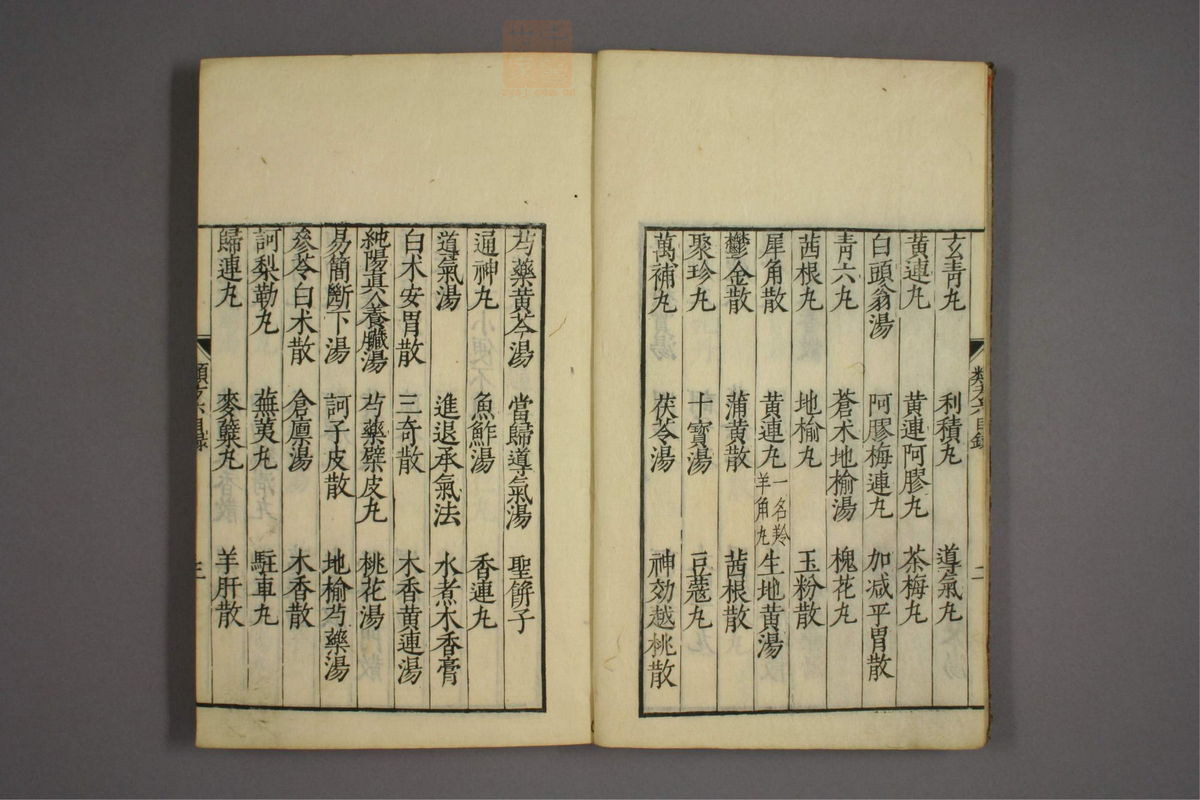 玄青丸　利積丸　導氣丸
黄連丸　黄連阿膠丸　茶梅丸
白頭翁湯　阿膠梅連丸　加减平胃散
青六丸　蒼术地榆湯　槐花丸
茜根丸　地榆丸　玉粉散
犀角散　黄連丸一名羚羊角丸　生地黄湯
鬱金散　蒲黄散　茜根散
聚珍丸　十寳湯　豆蔻丸
萬補丸　茯苓湯　神効越桃散
類方六目録　二
芍藥黄芩湯　當歸導氣湯　聖餅子
通神丸　魚鮓湯　香連丸
導氣湯　進退承氣法　水煮木香膏
白术安胃散　三奇散　木香黄連湯
純陽真人養臟湯　芍藥檗皮丸　桃花湯
易簡斷下湯　訶子皮散　地榆芍藥湯
參苓白术散　倉廪湯　木香散
訶梨勒丸　蕪荑丸　駐車丸
歸連丸　麥蘖丸　羊肝散
類方六目録　三